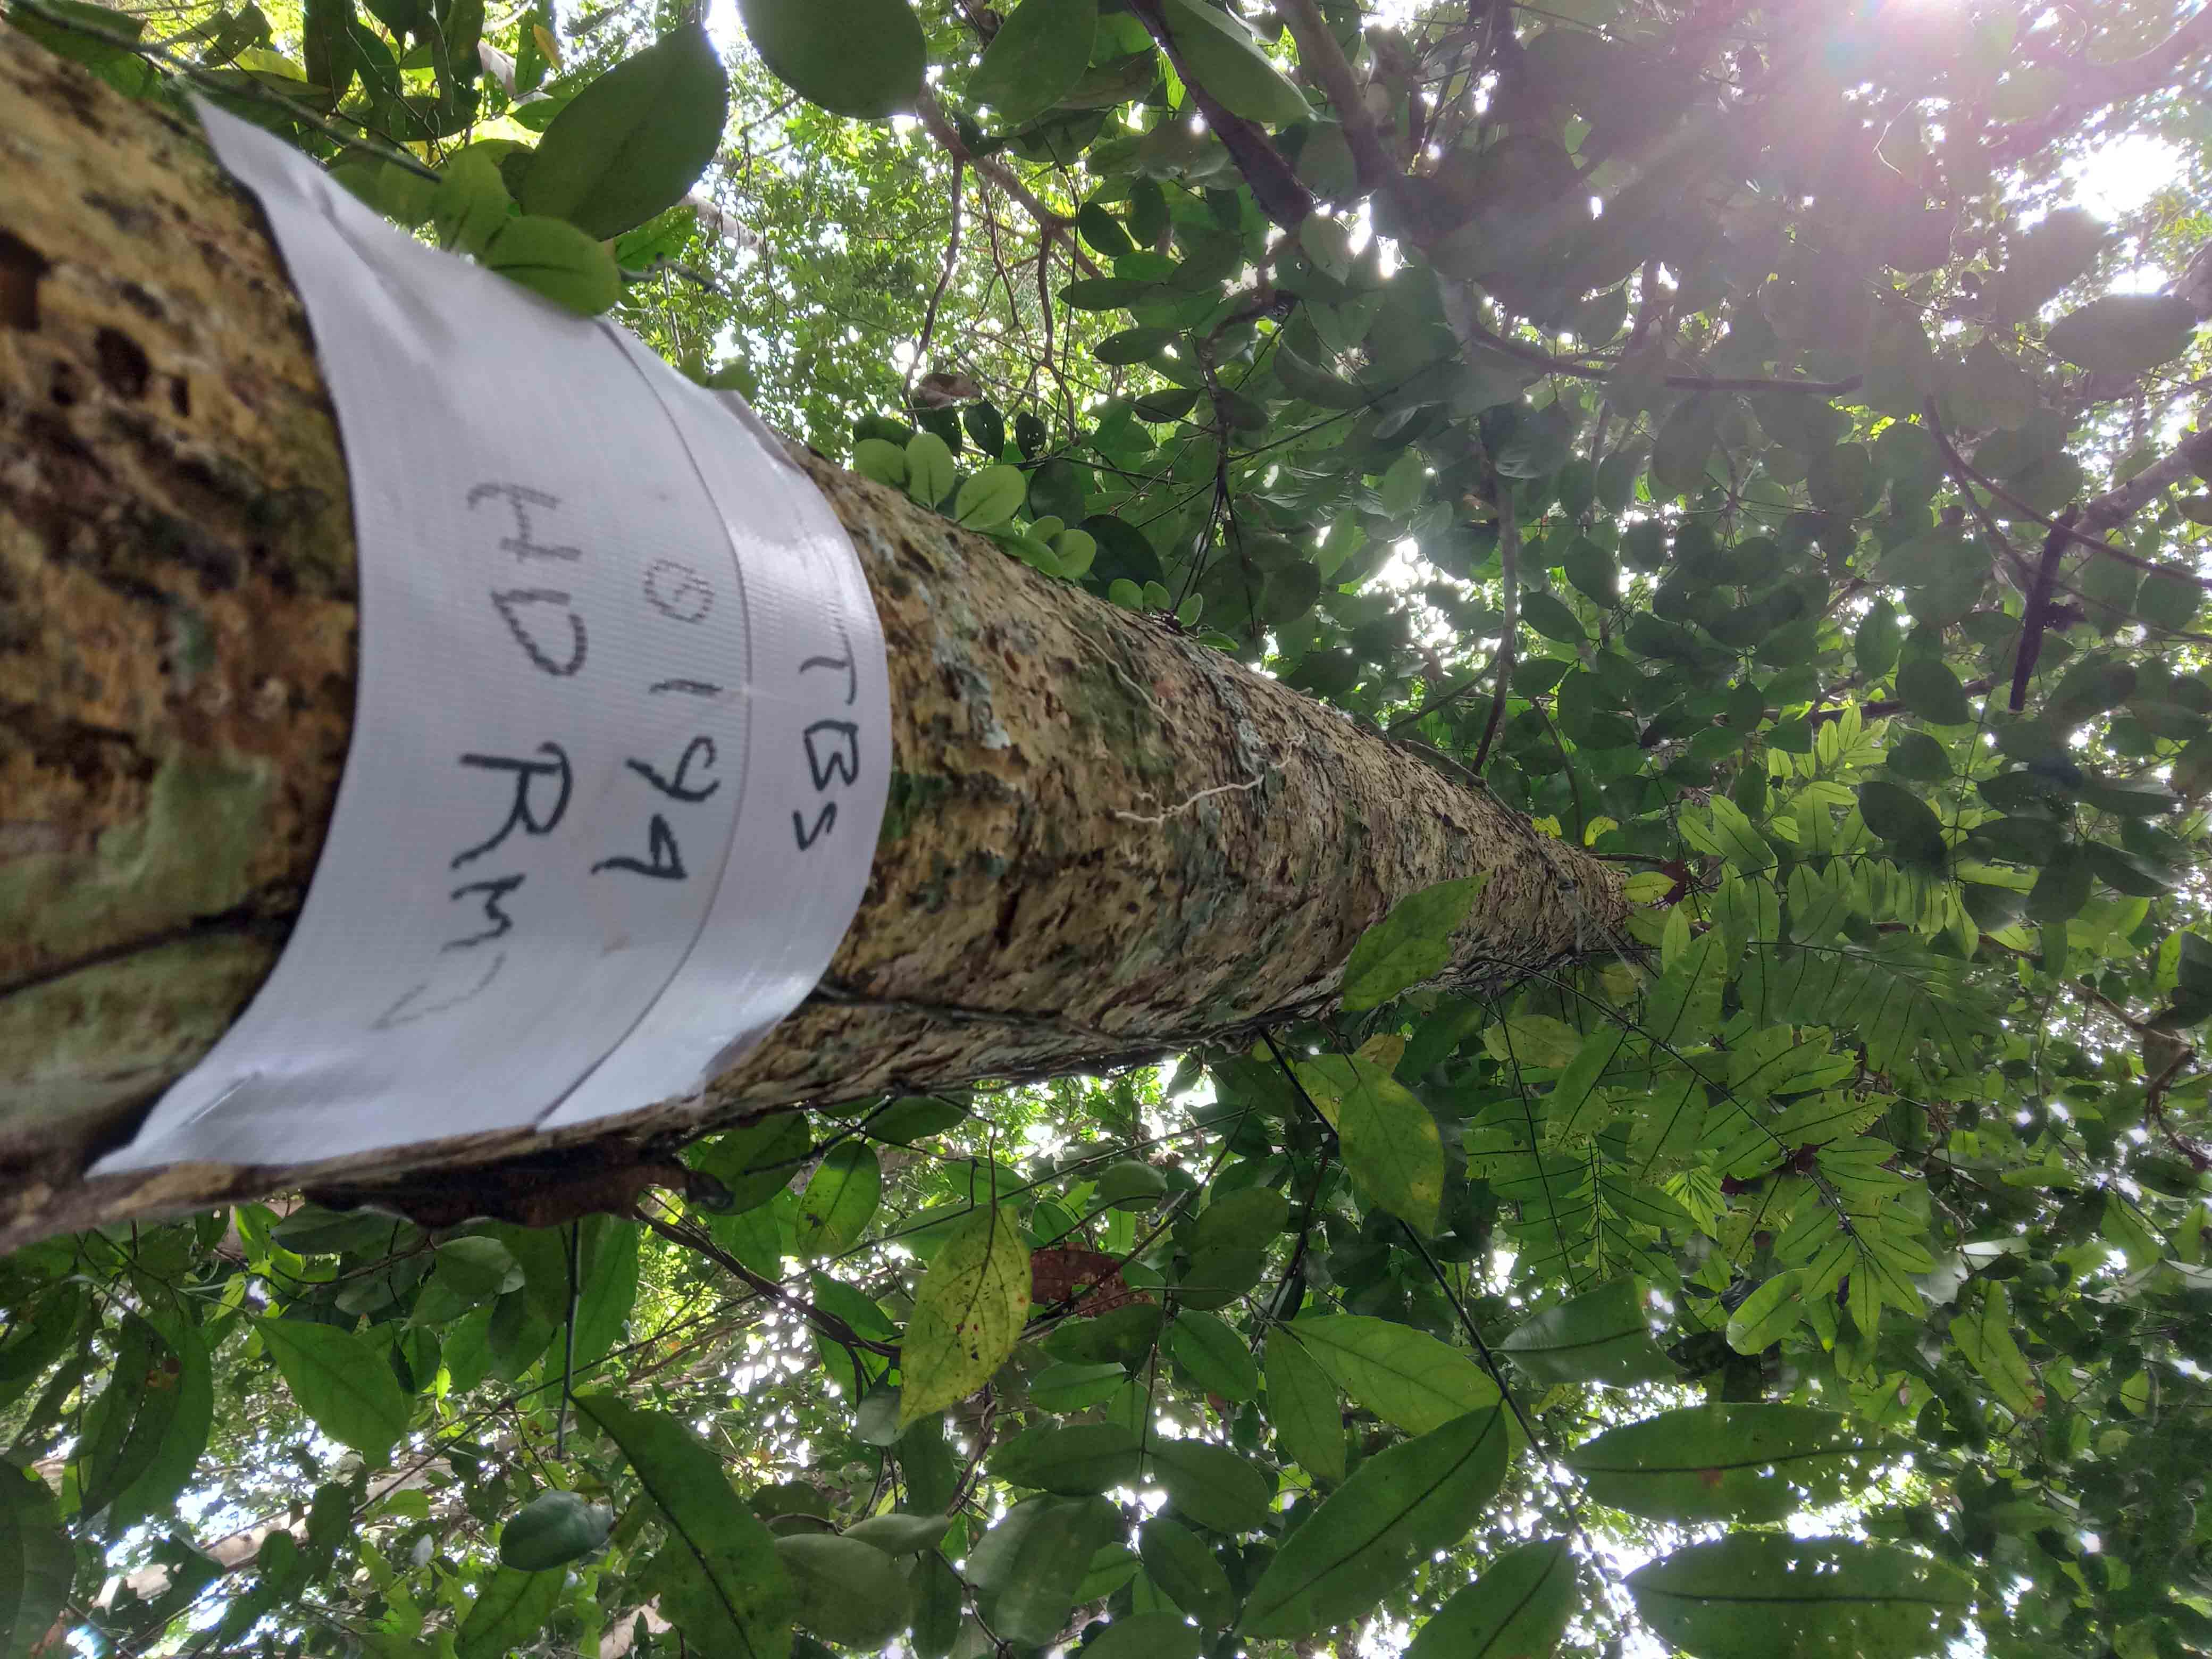 TBS
0194
HD RM2